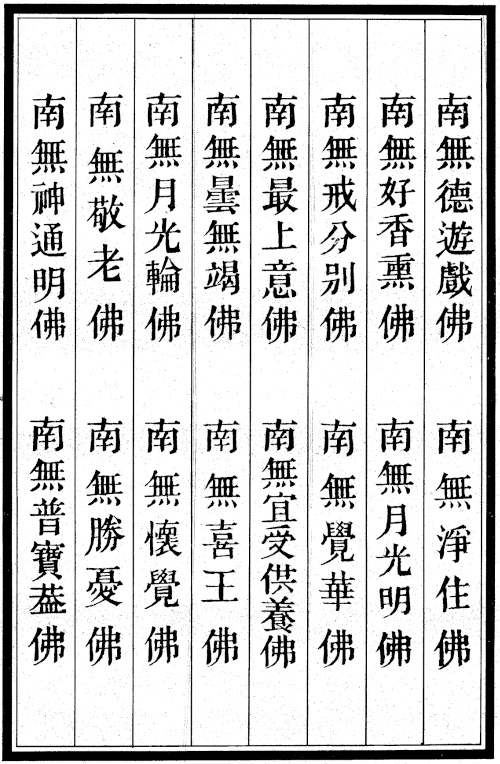 南無德遊戲佛
南無淨住佛
南無好香熏佛
南無月光明佛
南無戒分別佛
南無覺華佛
南無最上意佛
南無宜受供養佛
南無曇無竭佛
南無喜王佛
南無月光輪佛
南無懷覺佛
南無敬老佛
南無勝憂佛
南無神通明佛
南無普寶葢佛